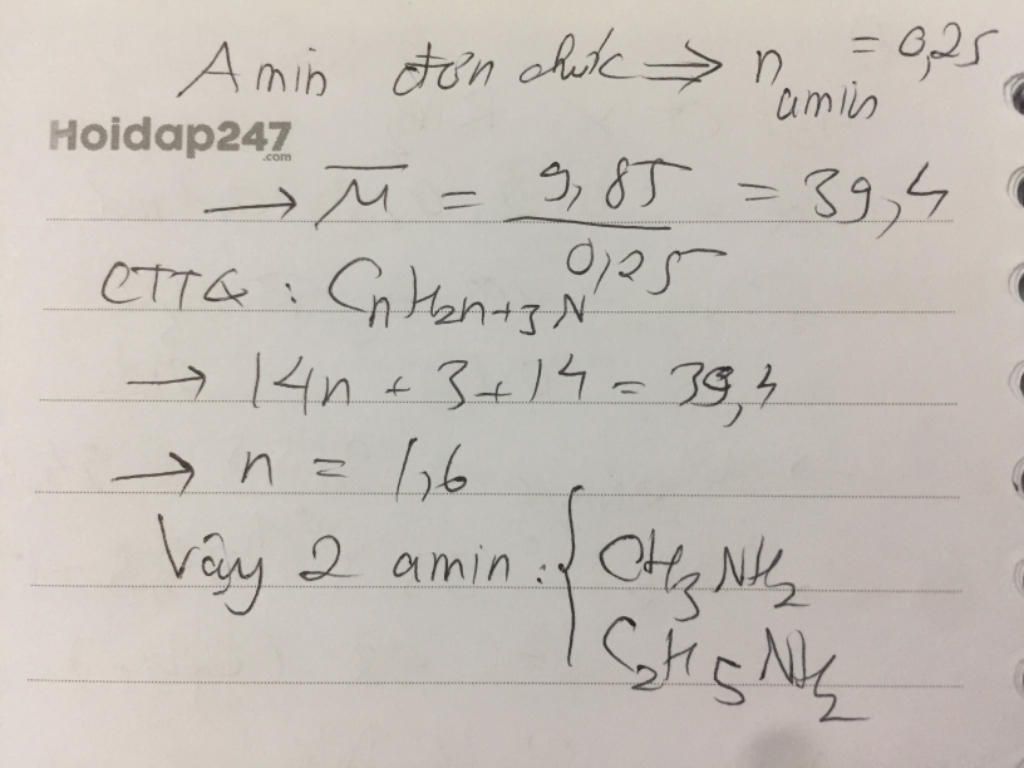 Amin đơn chức ⟹ n amin = 0,25
Hoidap247
.com
→ M̅ = 9,85 / 0,25 = 39,4
CTTQ : CnH2n+3N
→ 14n + 3 + 14 = 39,4
→ n = 1,6
Vậy 2 amin : { CH3NH2
C2H5NH2